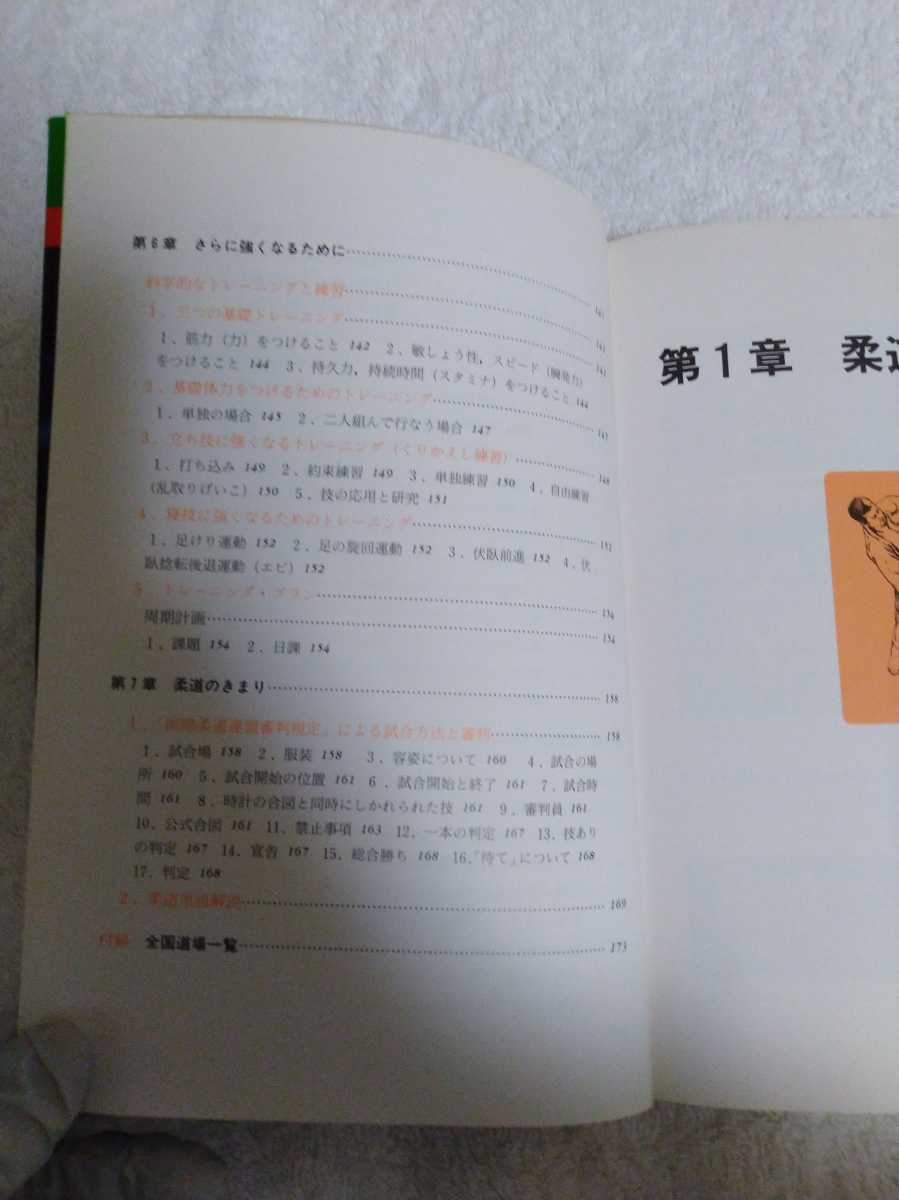 第6章 さらに強くなるために…………141
科学的なトレーニングと練習…………141
1．三つの基礎トレーニング…………142
1．筋力（力）をつけること 142 2．敏しょう性，スピード（瞬発力）
をつけること 144 3．持久力，持続時間（スタミナ）をつけること 144
2．基礎体力をつけるためのトレーニング…………145
1．単独の場合 145 2．二人組んで行なう場合 147
3．立ち技に強くなるトレーニング（くりかえし練習）…………148
1．打ち込み 149 2．約束練習 149 3．単独練習 150 4．自由練習
（乱取りげいこ） 150 5．技の応用と研究 151
4．寝技に強くなるためのトレーニング…………152
1．足けり運動 152 2．足の旋回運動 152 3．伏臥前進 152 4．伏
臥捻転後退運動（エビ） 152
5．トレーニング・プラン…………154
周期計画…………154
1．課題 154 2．日課 154
第7章 柔道のきまり…………158
1．「国際柔道連盟審判規定」による試合方法と審判…………158
1．試合場 158 2．服装 158 3．容姿について 160 4．試合の場
所 160 5．試合開始の位置 161 6．試合開始と終了 161 7．試合時
間 161 8．時計の合図と同時にしかれられた技 161 9．審判員 161
10．公式合図 161 11．禁止事項 163 12．一本の判定 167 13．技あり
の判定 167 14．宣告 167 15．総合勝ち 168 16．「待て」について 168
17．判定 168
2．柔道用語解説…………169
付録 全国道場一覧…………173
第1章 柔道